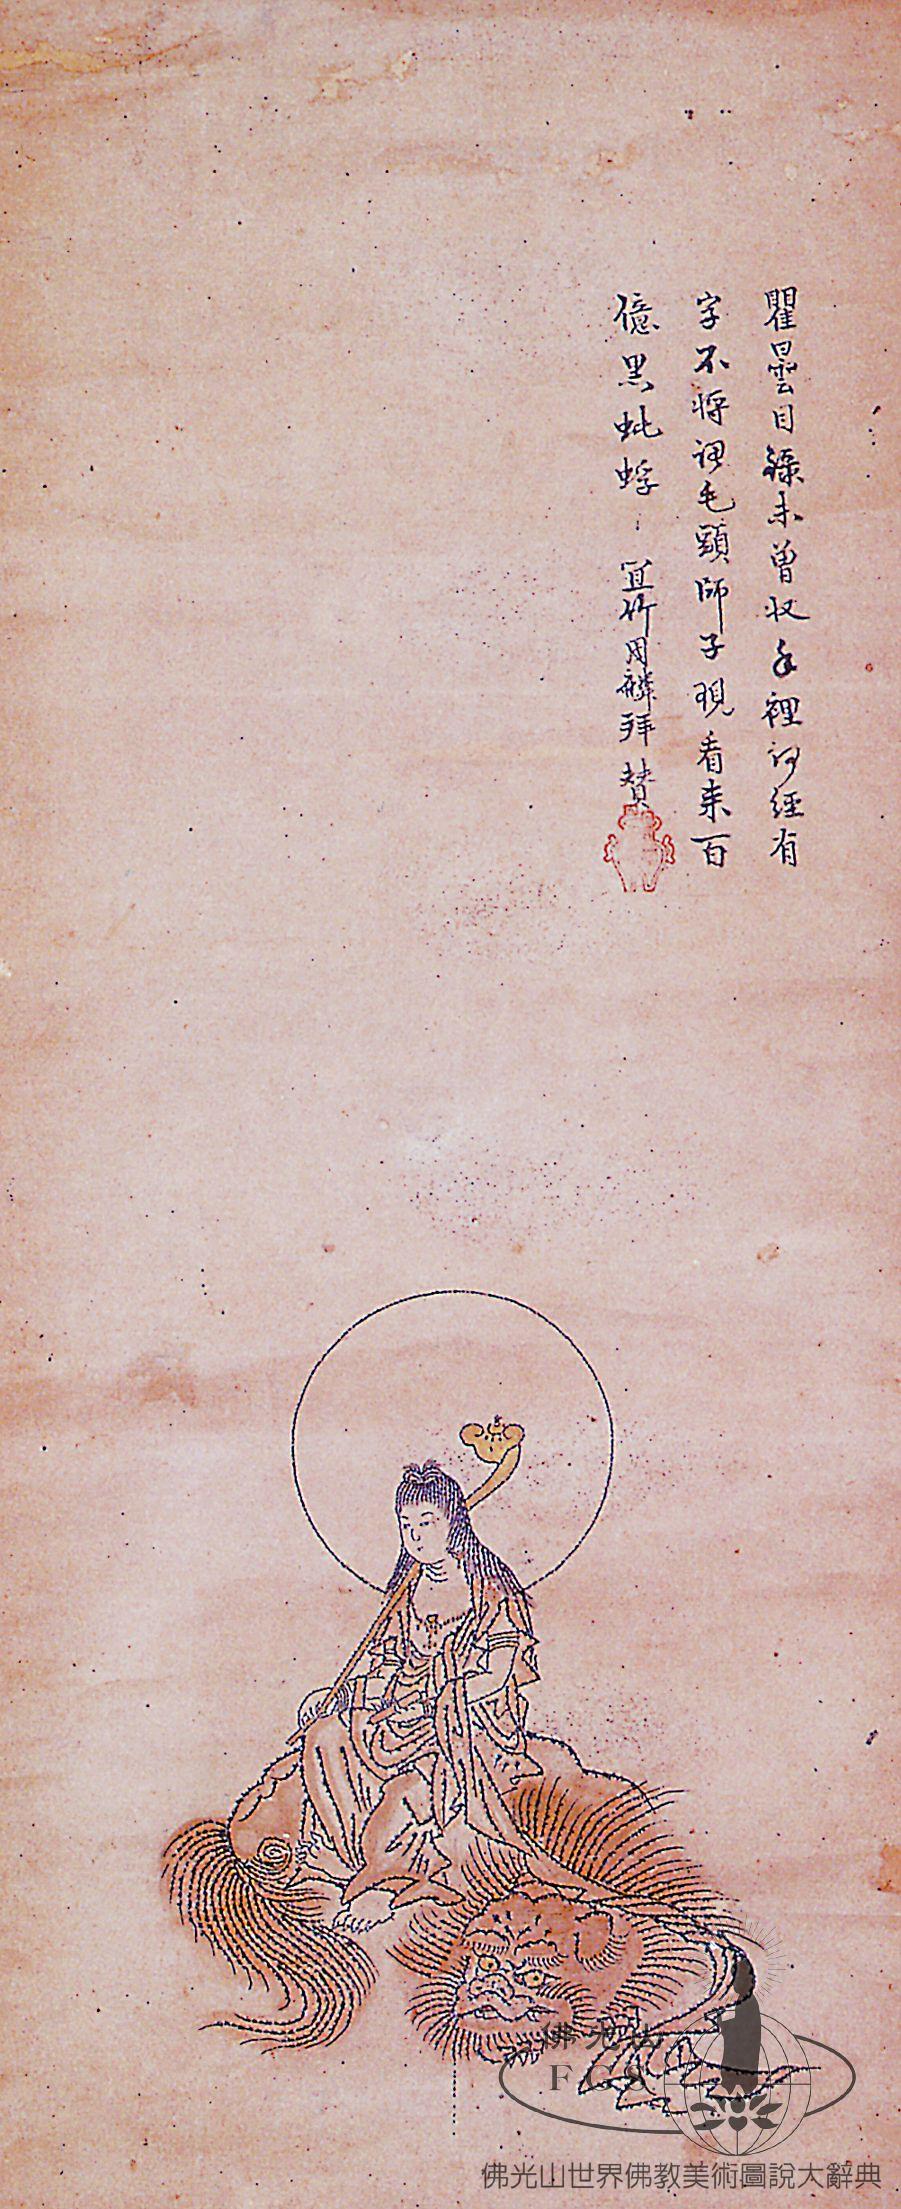 瞿曇目録未曾収手裡何經有
字不将認毛頭師子現看来百
億黒蚍蜉 宜竹周麟拜賛
佛光山
FGS
佛光山世界佛教美術圖說大辭典